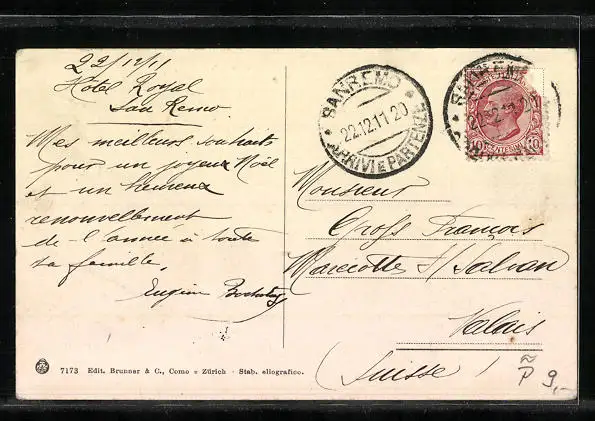 22/12/11
Hôtel Royal
San Remo
Mes meilleurs souhaits
pour un joyeux Noël
et un heureux
renouvellement
de l'année à toute
ta famille,
Eugène
SANREMO
22.12.11-20
ARRIVI E PARTENZE
Monsieur
Gross François
Marecotte s/ Salvan
Valais
(Suisse)
P 9,-
7173 Edit. Brunner & C., Como e Zürich - Stab. eliografico.